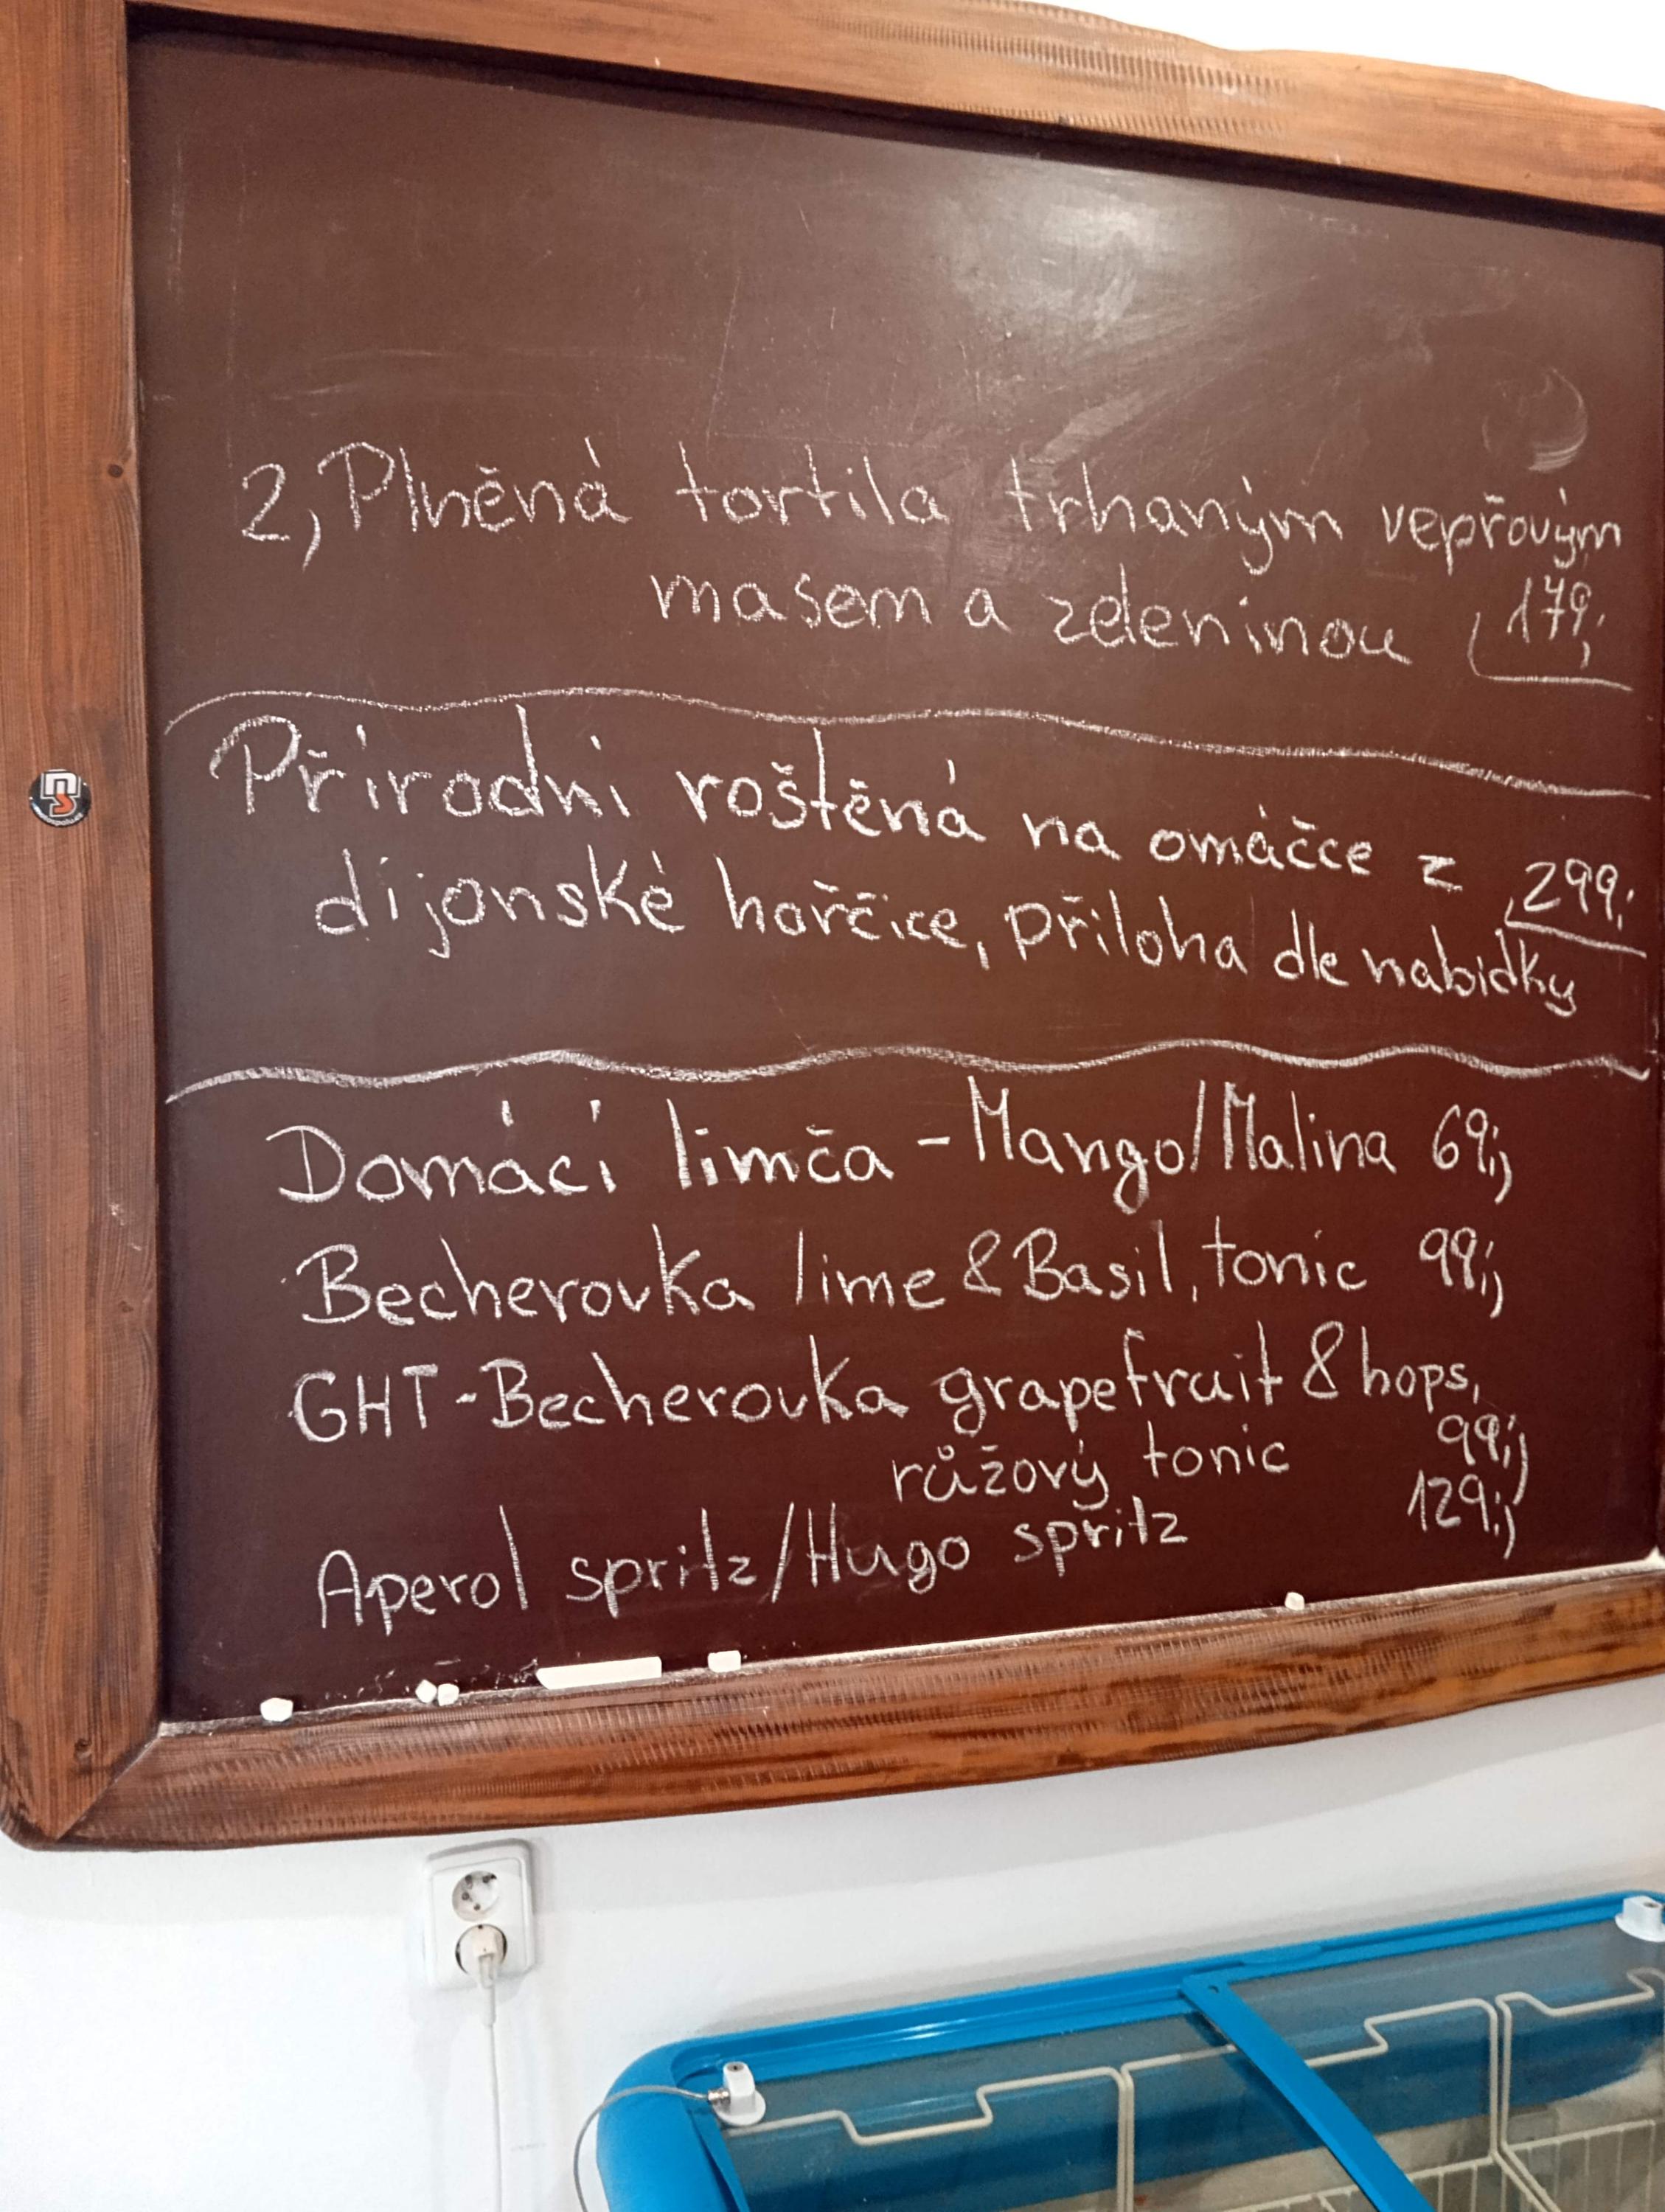 2, Plněná tortila trhaným vepřovým
masem a zeleninou 179,-
Přírodní roštěná na omáčce z 299,-
dijonské hořčice, příloha dle nabídky
Domácí limča - Mango/Malina 69,-
Becherovka lime & Basil, tonic 99,-
GHT - Becherovka grapefruit & hops,
růžový tonic 99,-
Aperol spritz/Hugo spritz 129,-